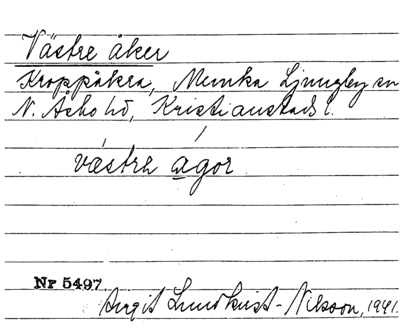 Västre åker
Kroppåkra, Munka Ljungby sn
N. Åsbo hd, Kristianstads l.
västra agor
Nr 5497.
Birgit Lundkvist-Nilsson, 1941.